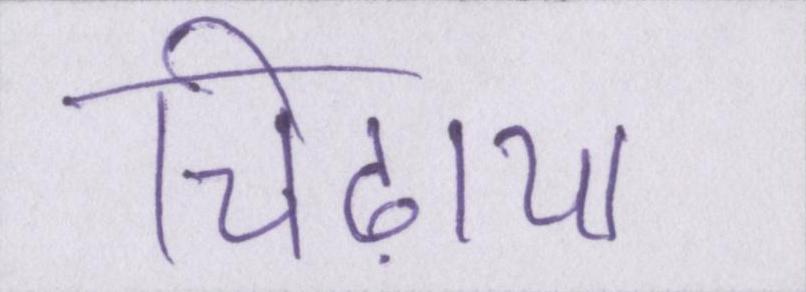 चिढ़ाया